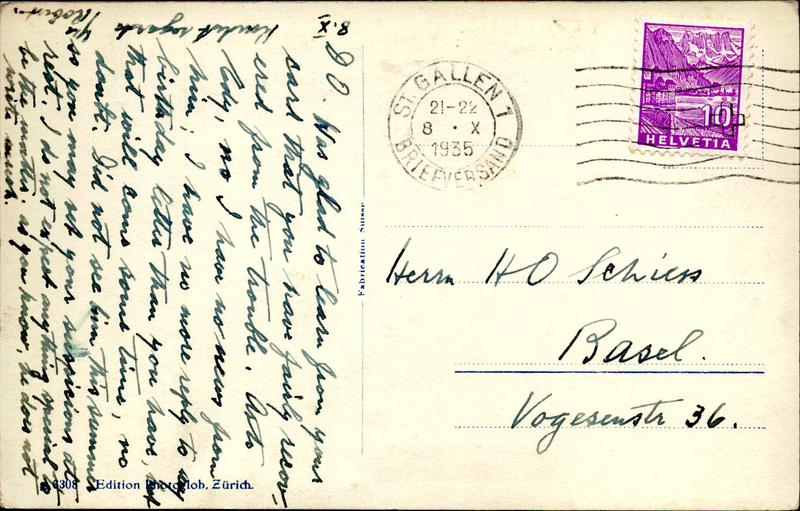 8.X
D O. Was glad to learn from your
card that you have fairly recov-
ered from the trouble. Ads
lody, no I have no news from
him; I have no more reply to my
birthday letter than you have, but
that will come some time, no
doubt. Did not see him this summer
so you may set your suspicions at
rest. I do not expect anything special to
be the matter, as you know, he does not
write much.
Kindest regards
Yrs
Robert
ST. GALLEN 1
21-22
8 · X
1935
BRIEFVERSAND
10
HELVETIA
Herrn H O Schiess
Basel.
Vogesenstr 36.
Fabrication Suisse
6308 Edition Photoglob, Zürich.